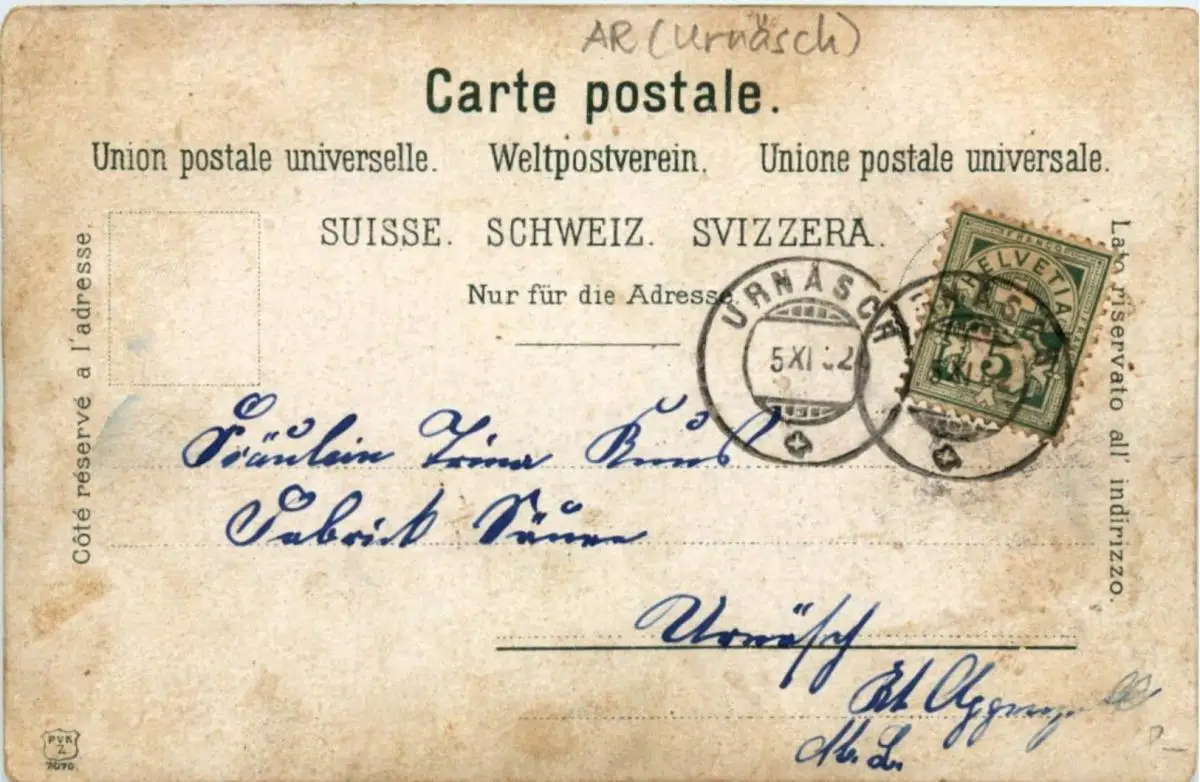 AR (Urnäsch)
Carte postale.
Union postale universelle. Weltpostverein. Unione postale universale.
SUISSE. SCHWEIZ. SVIZZERA.
Nur für die Adresse.
Côté réservé à l'adresse.
Lato riservato all' indirizzo.
FRANCO
HELVETIA
5
URNÄSCH
5 XI 02
URNÄSCH
Fräulein Trina
Fabrick
Urnäsch
Kt Appenzell
PVKZ
7070.